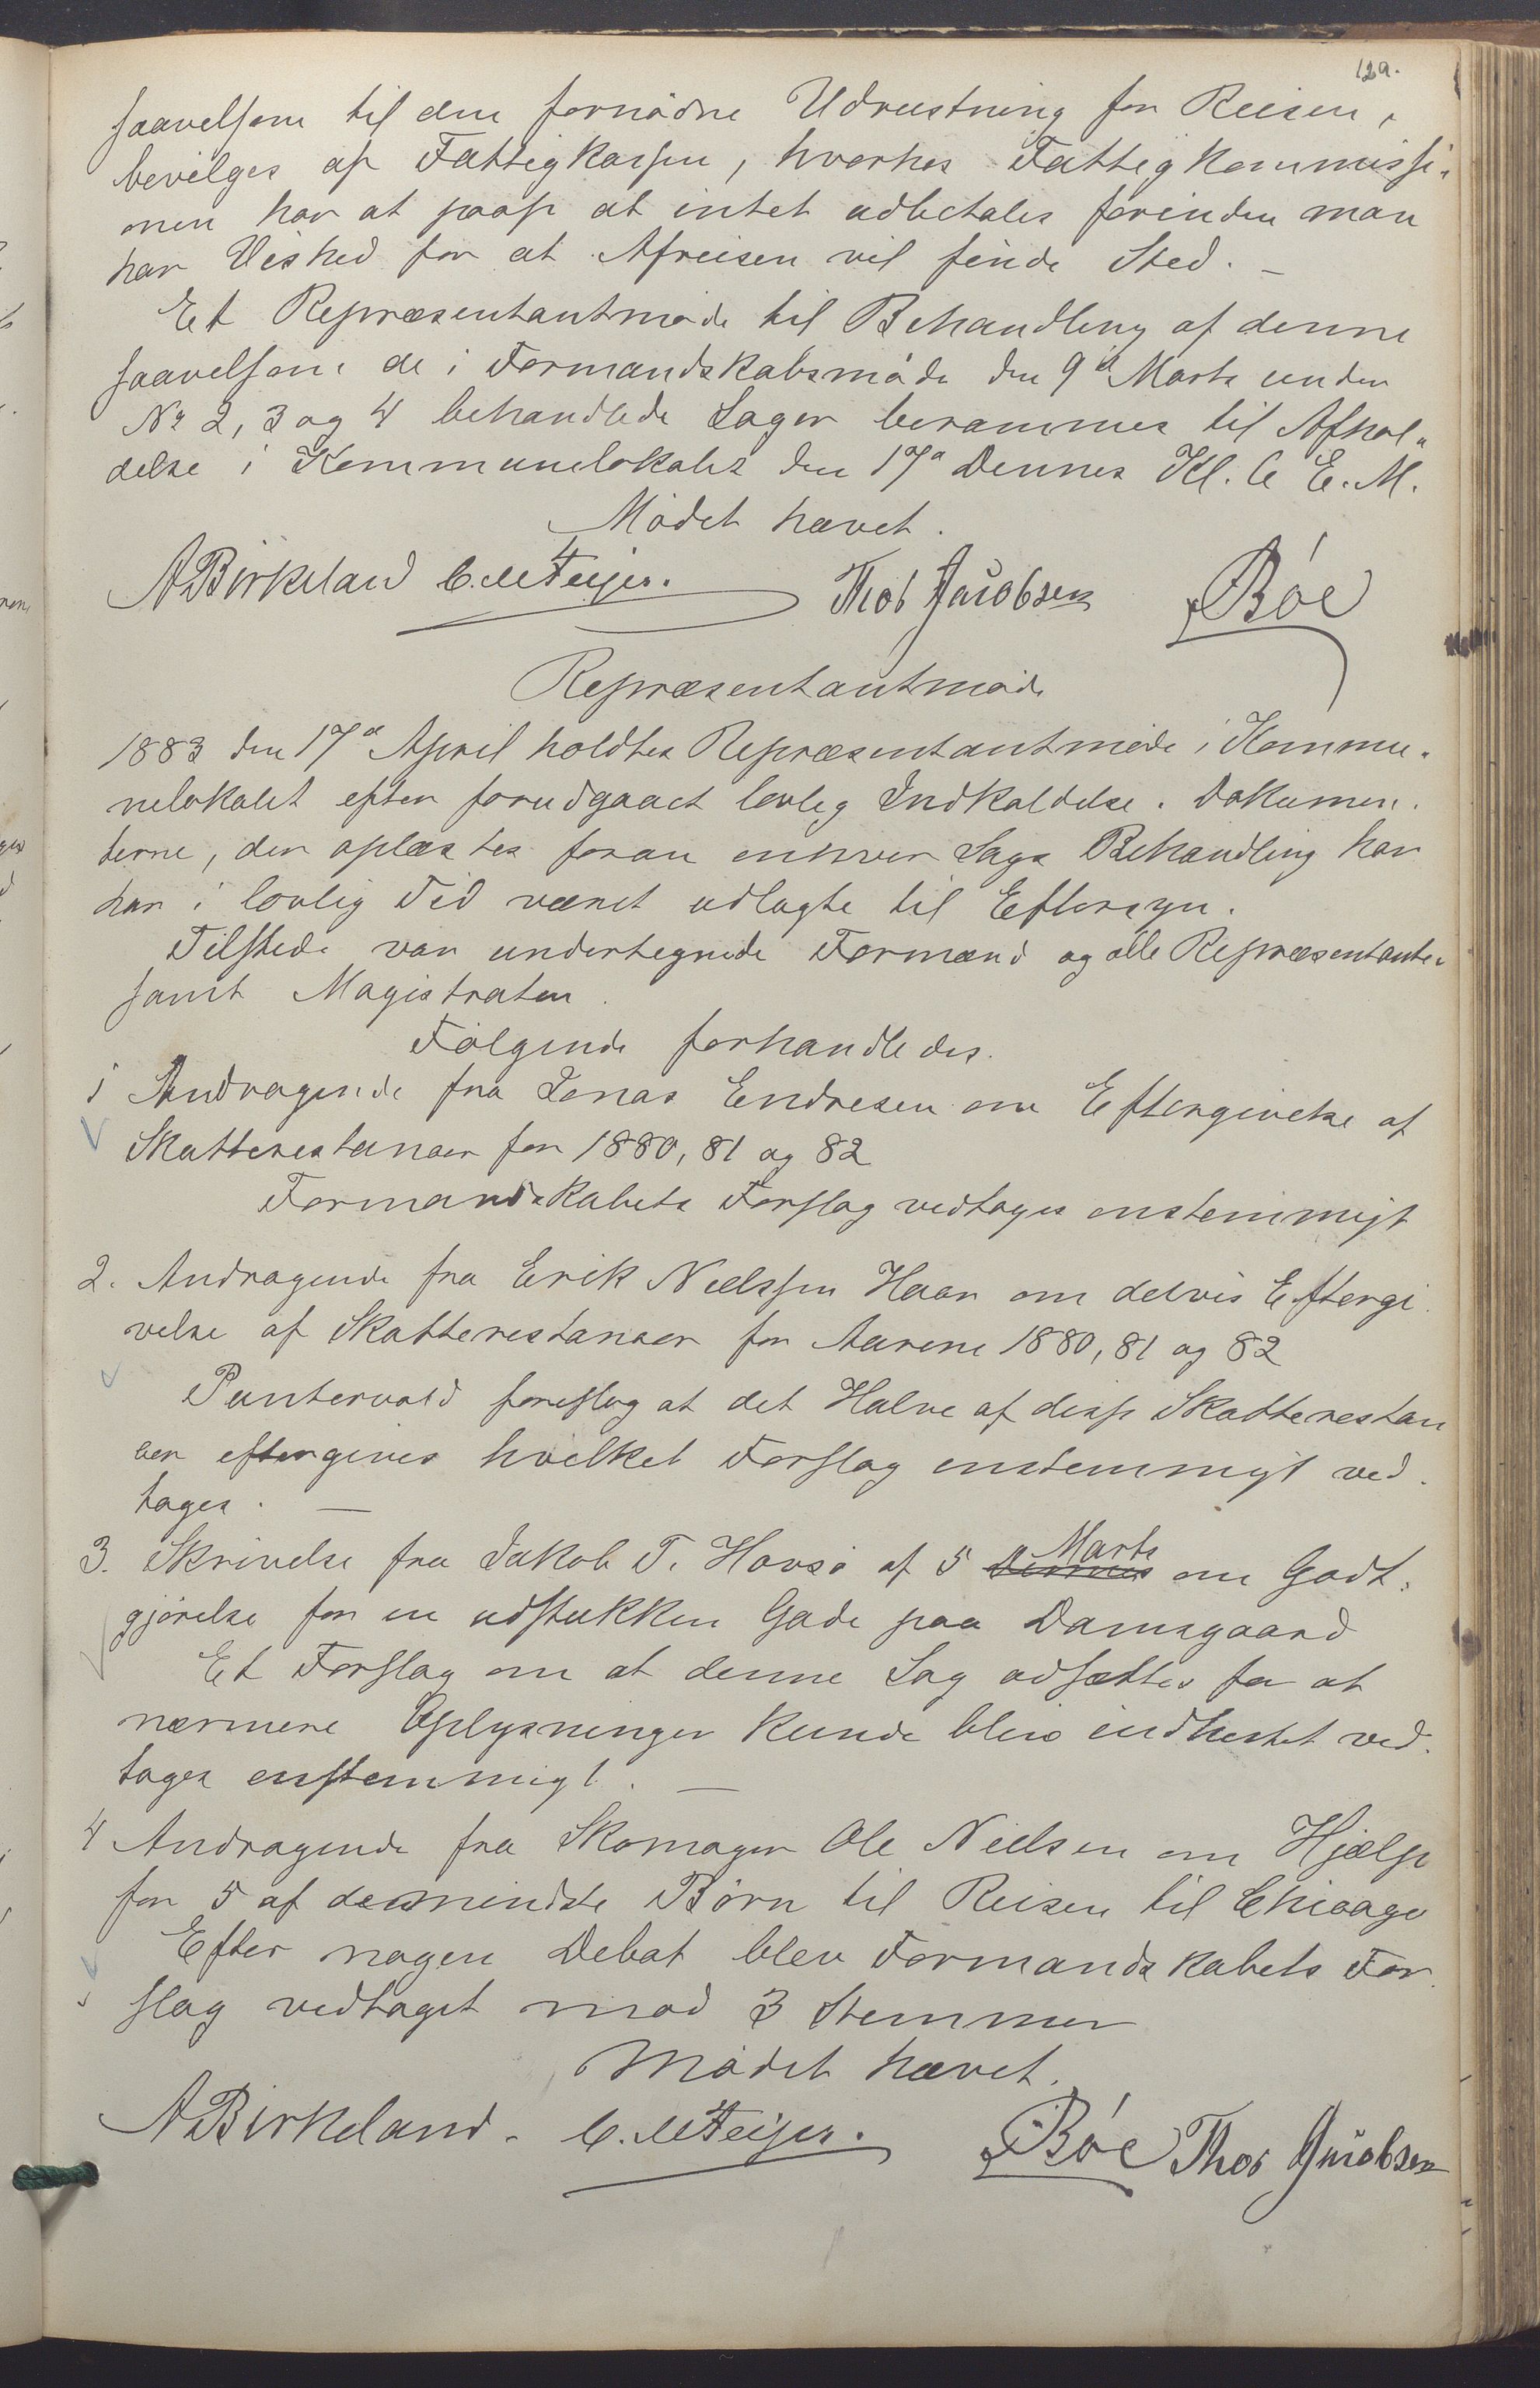 129.
saavelsom til den fornødne Udrustning for Reisen,
bevilges af Fattigkassen, hvorhos Fattigkommissi-
onen har at paase at intet udbetales forinden man
har Vished for at Afreisen vil finde Sted. —
Et Repræsentantmøde til Behandling af denne
saavelsom de i Formandskabsmøde den 9d Marts under
No 2, 3 og 4 behandlede Sager berammes til Afhol-
delse i Kommunelokalet den 17d Dennes Kl. 6 E. M.
Mødet hævet.
A Birkeland Thos Jacobsen Bøe
Repræsentantmøde
1883 den 17d April holdtes Repræsentantmøde i Kommu-
nelokalet efter forudgaaet lovlig Indkaldelse. Dokumen-
terne, der oplæstes foran enhver Sags Behandling har
har i lovlig Tid været udlagte til Eftersyn.
Tilstede var undertegnede Formænd og alle Repræsentanter
samt Magistraten.
Følgende forhandledes.
1 Andragende fra Jonas Endresen om Eftergivelse af
Skatterestancer for 1880, 81 og 82
Formandskabets Forslag vedtages enstemmigt
2. Andragende fra Erik Nielssen Haar om delvis Eftergi-
velse af Skatterestancer for Aarene 1880, 81 og 82
Puntervold foreslog at det Halve af disse Skatterestan
cer eftergives hvilket Forslag enstemmigt ved-
tages. —
3. Skrivelse fra Jakob T. Hovsø af 5 Dennes Marts om Godt-
gjørelse for en udstukken Gade paa Damsgaard
Et Forslag om at denne Sag udsættes for at
nærmere Oplysninger kunde blive indhentet ved-
tages enstemmigt. —
4 Andragende fra Skomager Ole Nielsen om Hjælp
for 5 af de mindste Børn til Reisen til Chicago
Efter nogen Debat blev Formandskabets For-
slag vedtaget mod 3 Stemmer
Mødet hævet.
A Birkeland. Bøe Thos Jacobsen